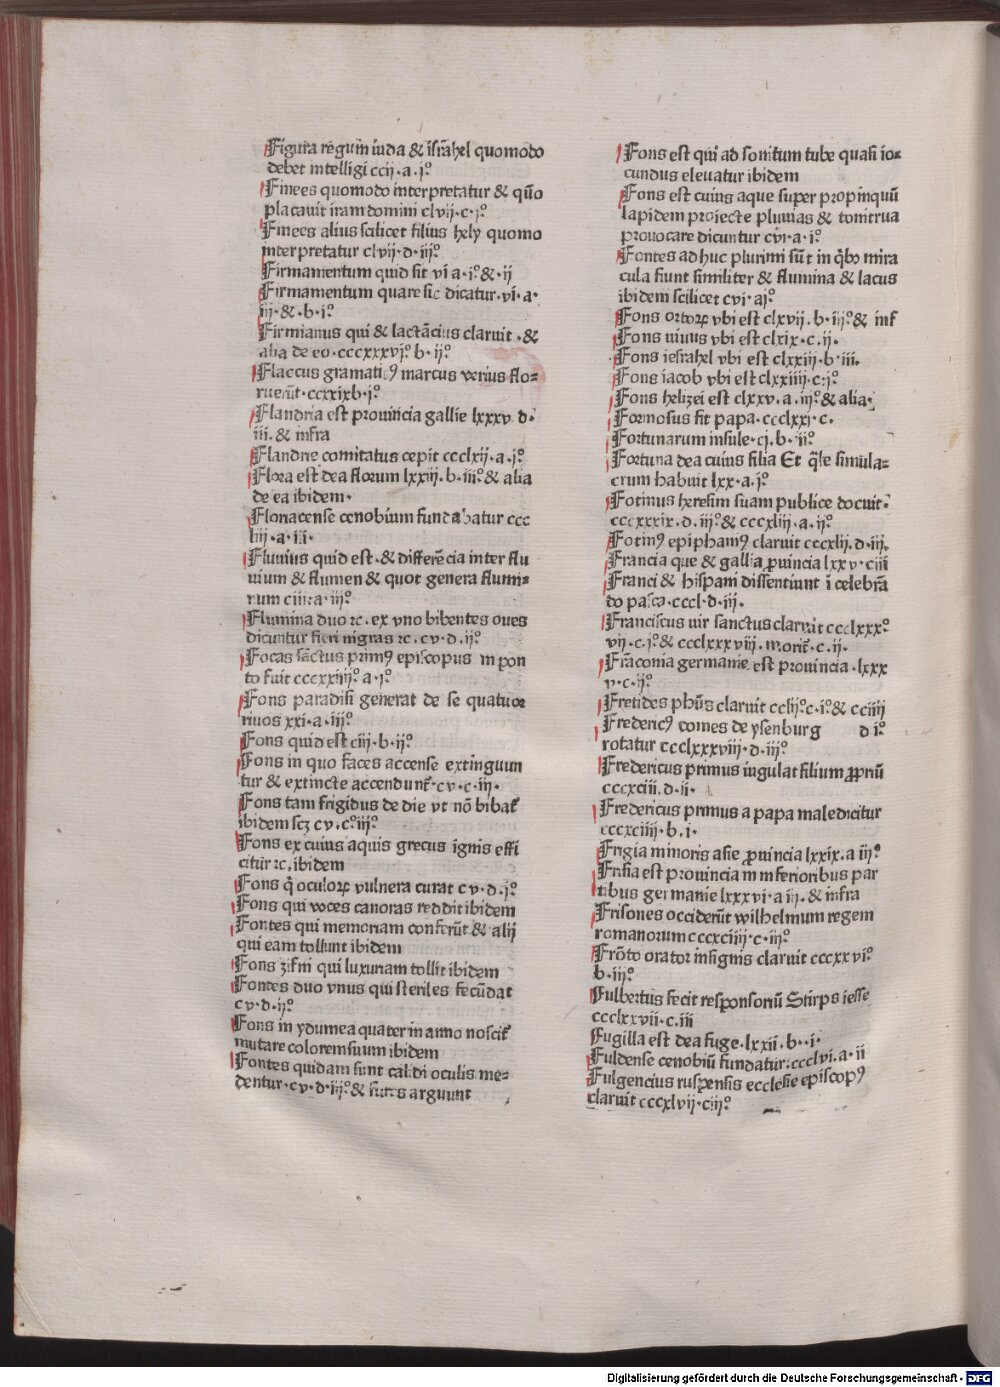 Figura regum iuda & israhel quomodo
debet intelligi ccij·a·jº
Finees quomodo interpretatur & quo
placauit iram domini clvij·c·jº
Finees alius scilicet filius hely quomo
interpretatur clvij·d·iijº
Firmamentum quid sit vi a·jº & ij
Firmamentum quare sic dicatur·vi·a·
iij·&·b·jº
Firmianus qui & lactācius claruit·&
alia de eo·cccxxxvjº b·ijº
Flaccus gramaticꝰ marcus verius flo-
ruerūt·ccxxixb·jº
Flandria est prouincia gallie lxxxv d·
iii. & infra
Flandrie comitatus cepit ccclxij·a·jº
Flora est dea florum lxxiij.b·iijº & alia
de ea ibidem·
Floriacense cenobium fundabatur ccc
liij·a·ii·
Fluuius quid est·& differēcia inter flu
uium & flumen & quot genera flumi-
num ciij·a·iijº
Flumina duo ⁊c. ex vno bibentes oues
dicuntur fieri nigras ⁊c. cv·d·ijº
Focas sāctus primꝰ episcopus in pon
to fuit cccxxiiijº a·jº
Fons paradisi generat de se quatuor
riuos xxi·a·iijº
Fons quid est ciij·b·ijº
Fons in quo faces accense extinguun
tur & extincte accendunt̄·cv·c·iij·
Fons tam frigidus de die vt nō bibat̄
ibidem scꝫ cv.cºiijº
Fons ex cuius aquis grecus ignis effi
citur ⁊c. ibidem
Fons q̄ oculoꝝ vulnera curat cv·d·jº
Fons qui voces canoras reddit ibidem
Fontes qui memoriam conferūt & alij
qui eam tollunt ibidem
Fons zifrii qui luxuriam tollit ibidem
Fontes duo vnus qui steriles fecūdat
cv·d·ijº
Fons in ydumea quater in anno noscit̄
mutare colorem suum ibidem
Fontes quidam sunt calidi oculis me-
dentur·cv·d·iijº & fures arguunt
Fons est qui ad sonitum tube quasi io-
cundus eleuatur ibidem
Fons est cuius aque super propinquū
lapidem proiecte pluuias & tonitrua
prouocare dicuntur cvi·a·iº
Fontes adhuc plurimi sūt in q̄bꝰ mira
cula fiunt similiter & flumina & lacus
ibidem scilicet cvj·ajº
Fons ortoꝝ vbi est clxvij.b·iijº & inf
Fons uiuus vbi est clxix·c·ij·
Fons iesrahel vbi est clxxiij·b·iii.
Fons iacob vbi est clxxiiij·c·jº
Fons helizei est clxxv.a.iijº & alia·
Formosus fit papa·ccclxxj·c·
Fortunarum insule·cj.b·iiº
Fortuna dea cuius filia Et q̄le simula-
crum habuit lxx·a.jº
Fotinus heresim suam publice docuit·
cccxxxix·d.iijº & cccxliij·a·ijº
Fotinꝰ epiphamꝰ claruit cccxlij.d·iij.
Francia que & gallia ꝓuincia lxxv·ciii
Franci & hispani dissentiunt ī celebrā
do pasca·cccl·d·iij.
Franciscus uir sanctus claruit ccclxxxº
vij·c·jº & ccclxxxviij.morit̄·c·ij·
Frāconia germanie est prouincia·lxxx
v·c·ijº
Fretides phūs claruit cclijº c·iº & cciiij
Fredericꝰ comes de ysenburg d iº
rotatur ccclxxxviij·d·iijº
Fredericus primus iugulat filium ꝓpriū
cccxciii.d·ij·
Fredericus primus a papa maledicitur
cccxciiij·b.i·
Frigia minoris asie ꝓuincia lxxix.a iijº
Frisia est prouincia in inferioribus par
tibus germanie lxxxvi·a iij.& infra
Frisones occiderūt wilhelmum regem
romanorum cccxciiij·c·iijº
Frōto orator insignis claruit cccxxviº
b·iijº
Fulbertus fecit responsoriū Stirps iesse
ccclxxvij·c.iii
Fugilla est dea fuge·lxxij.b··i·
Fuldense cenobiū fundatur:ccclvi.a·ii
Fulgencius ruspensis ecclesie episcopꝰ
claruit cccxlvij·ciijº
Digitalisierung gefördert durch die Deutsche Forschungsgemeinschaft - DFG